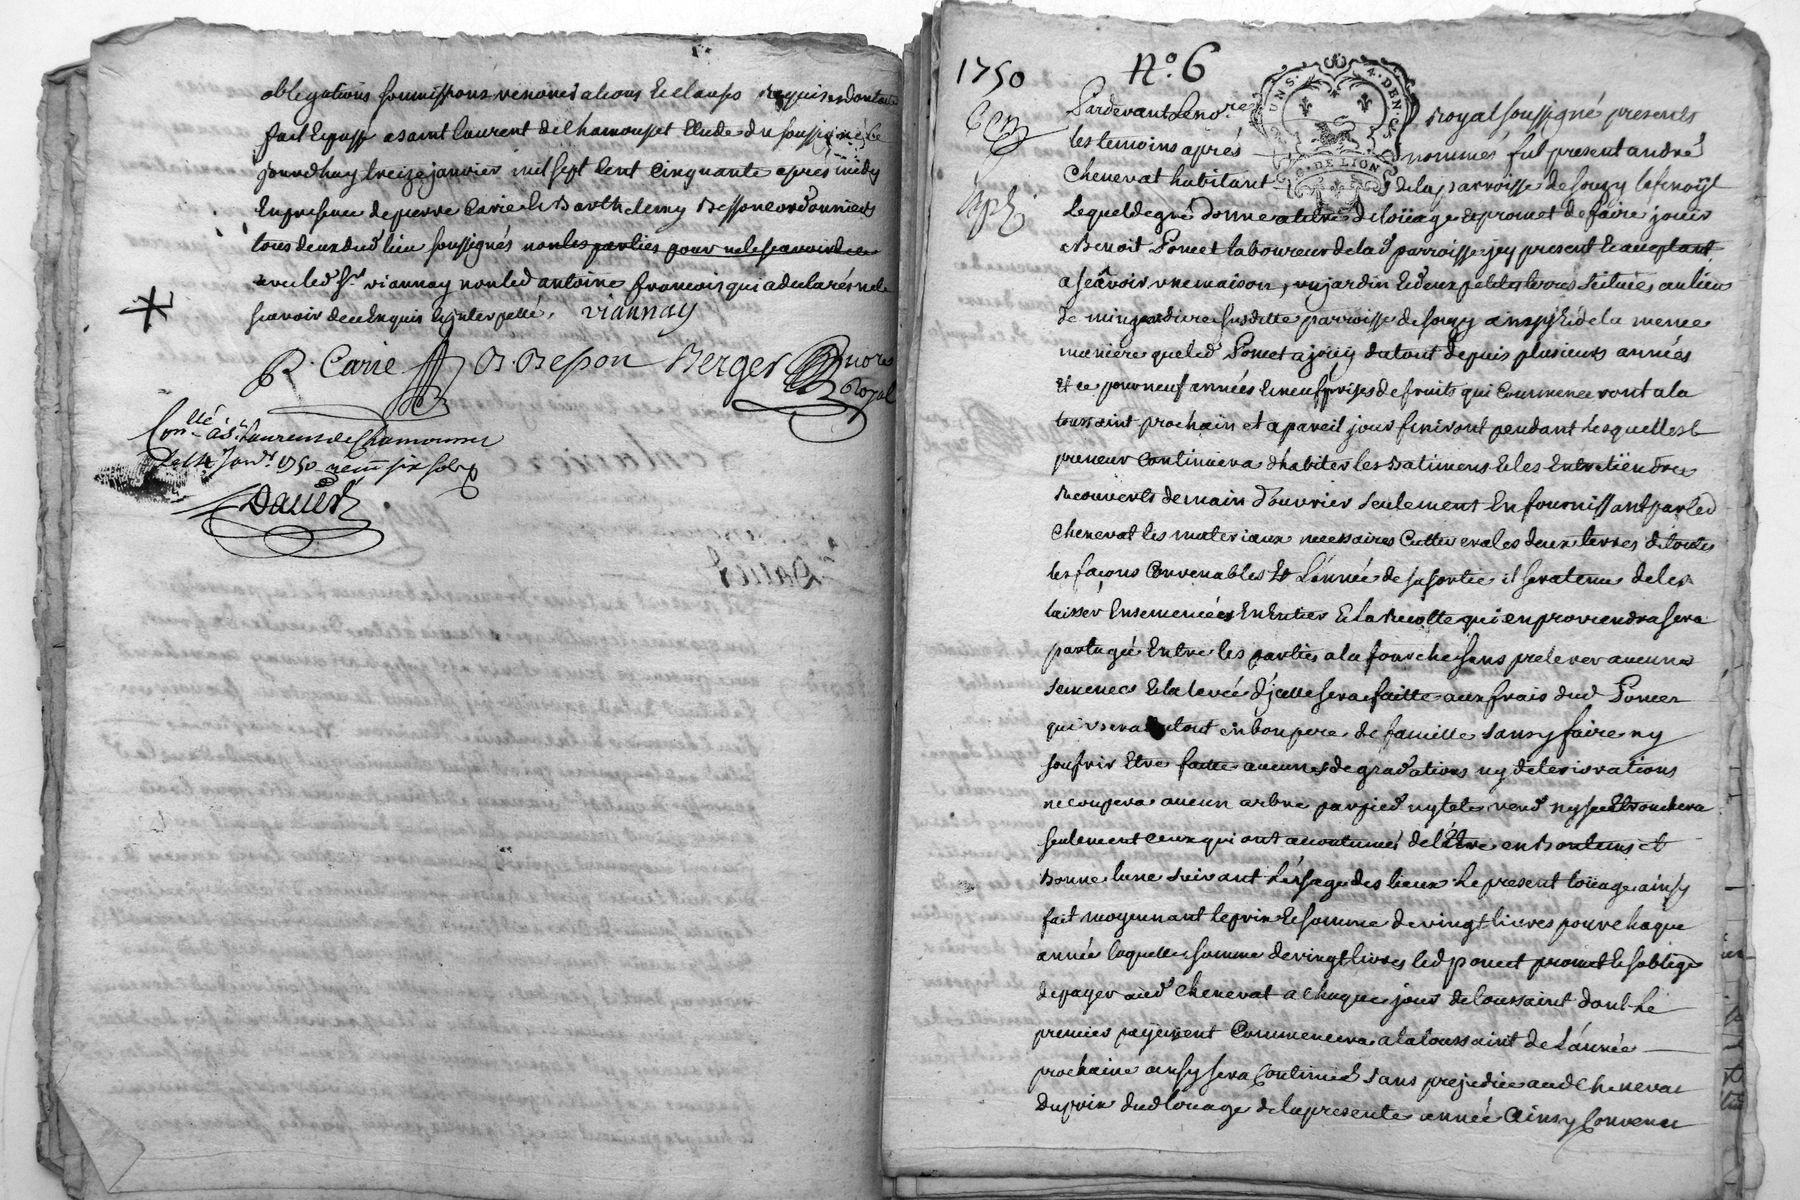 obligations soumissions renonciations et clauses requises dont acte
fait et passé a saint laurent de Chamousset Etude du soussigné le
jourdhuy treize janvier mil sept Cent Cinquante après midy
En presence de pierre Carie et Barthelemy Besson cordonniers
tous deux dud lieu soussignés non les parties pour ne le scavoir de ce
avec led Sr. viannay non led antoine francois qui a declaré ne le
scavoir de ce Enquis et interpellé. viannay
P. Carie B. Besson Berger nore
Royal
Conllé a St Laurens de Chamousset
le 14 Janr. 1750 six sols
Daued
1750 No. 6
Pardevant Le no.re Royal soussigné presents
les temoins après nommés fut present andré
UNS. 4. DEN
G. DE LION
Chenevat habitant de la parroisse de souzy
Lequel de gré donne a titre de loüage et promet de faire jouir
a Benoit Poncet laboureur de lad parroisse jcy present et acceptant
a scavoir vne maison, vn jardin et deux petites terres scituées au lieu
de susditte parroisse de souzy ainsy et de la meme
maniere que led Poncet a joüy du tout depuis plusieurs années
et ce pour neuf années et neuf prises de fruits qui Commenceront a la
toussaint prochain et a pareil jour finiront pendant lesquelles le
preneur Continuera dhabiter les Batimens et les Entretiendra
recouverts de main d'ouvrier seulement En fournissant par led
Chenevat les materiaux necessaires Cultivera les deux terres de toutes
les façons Convenables et L'année de sa sortie il sera tenu de les
laisser Ensemencées En Entier et la Recolte qui en proviendra sera
partagée Entre les parties a la fourche sans prelever aucunes
semences et la levée d'jcelle sera faitte aux frais dud Poncet
qui vsera du tout en bon pere de famille sans y faire ny
soufrir Etre faitte aucunes degradations ny deteriorations
ne coupera aucun arbre par pied ny tete verd ny sec Ebranchera
seulement Ceux qui ont accoutumés de l'Etre en Bon tems et
Bonne lune suivant L'vsage des lieux Le present loüage ainsy
fait moyennant le prix et somme de vingt livres pour chaque
année laquelle somme de vingt livres led Poncet promet et s'oblige
de payer aud Chenevat a Chaque jour de toussaint dont le
premier payement Commencera a la toussaint de L'année
prochaine ainsy sera Continué sans prejudice aud Chenevat
Du prix dud loüage de la presente année Ainsy Convenu